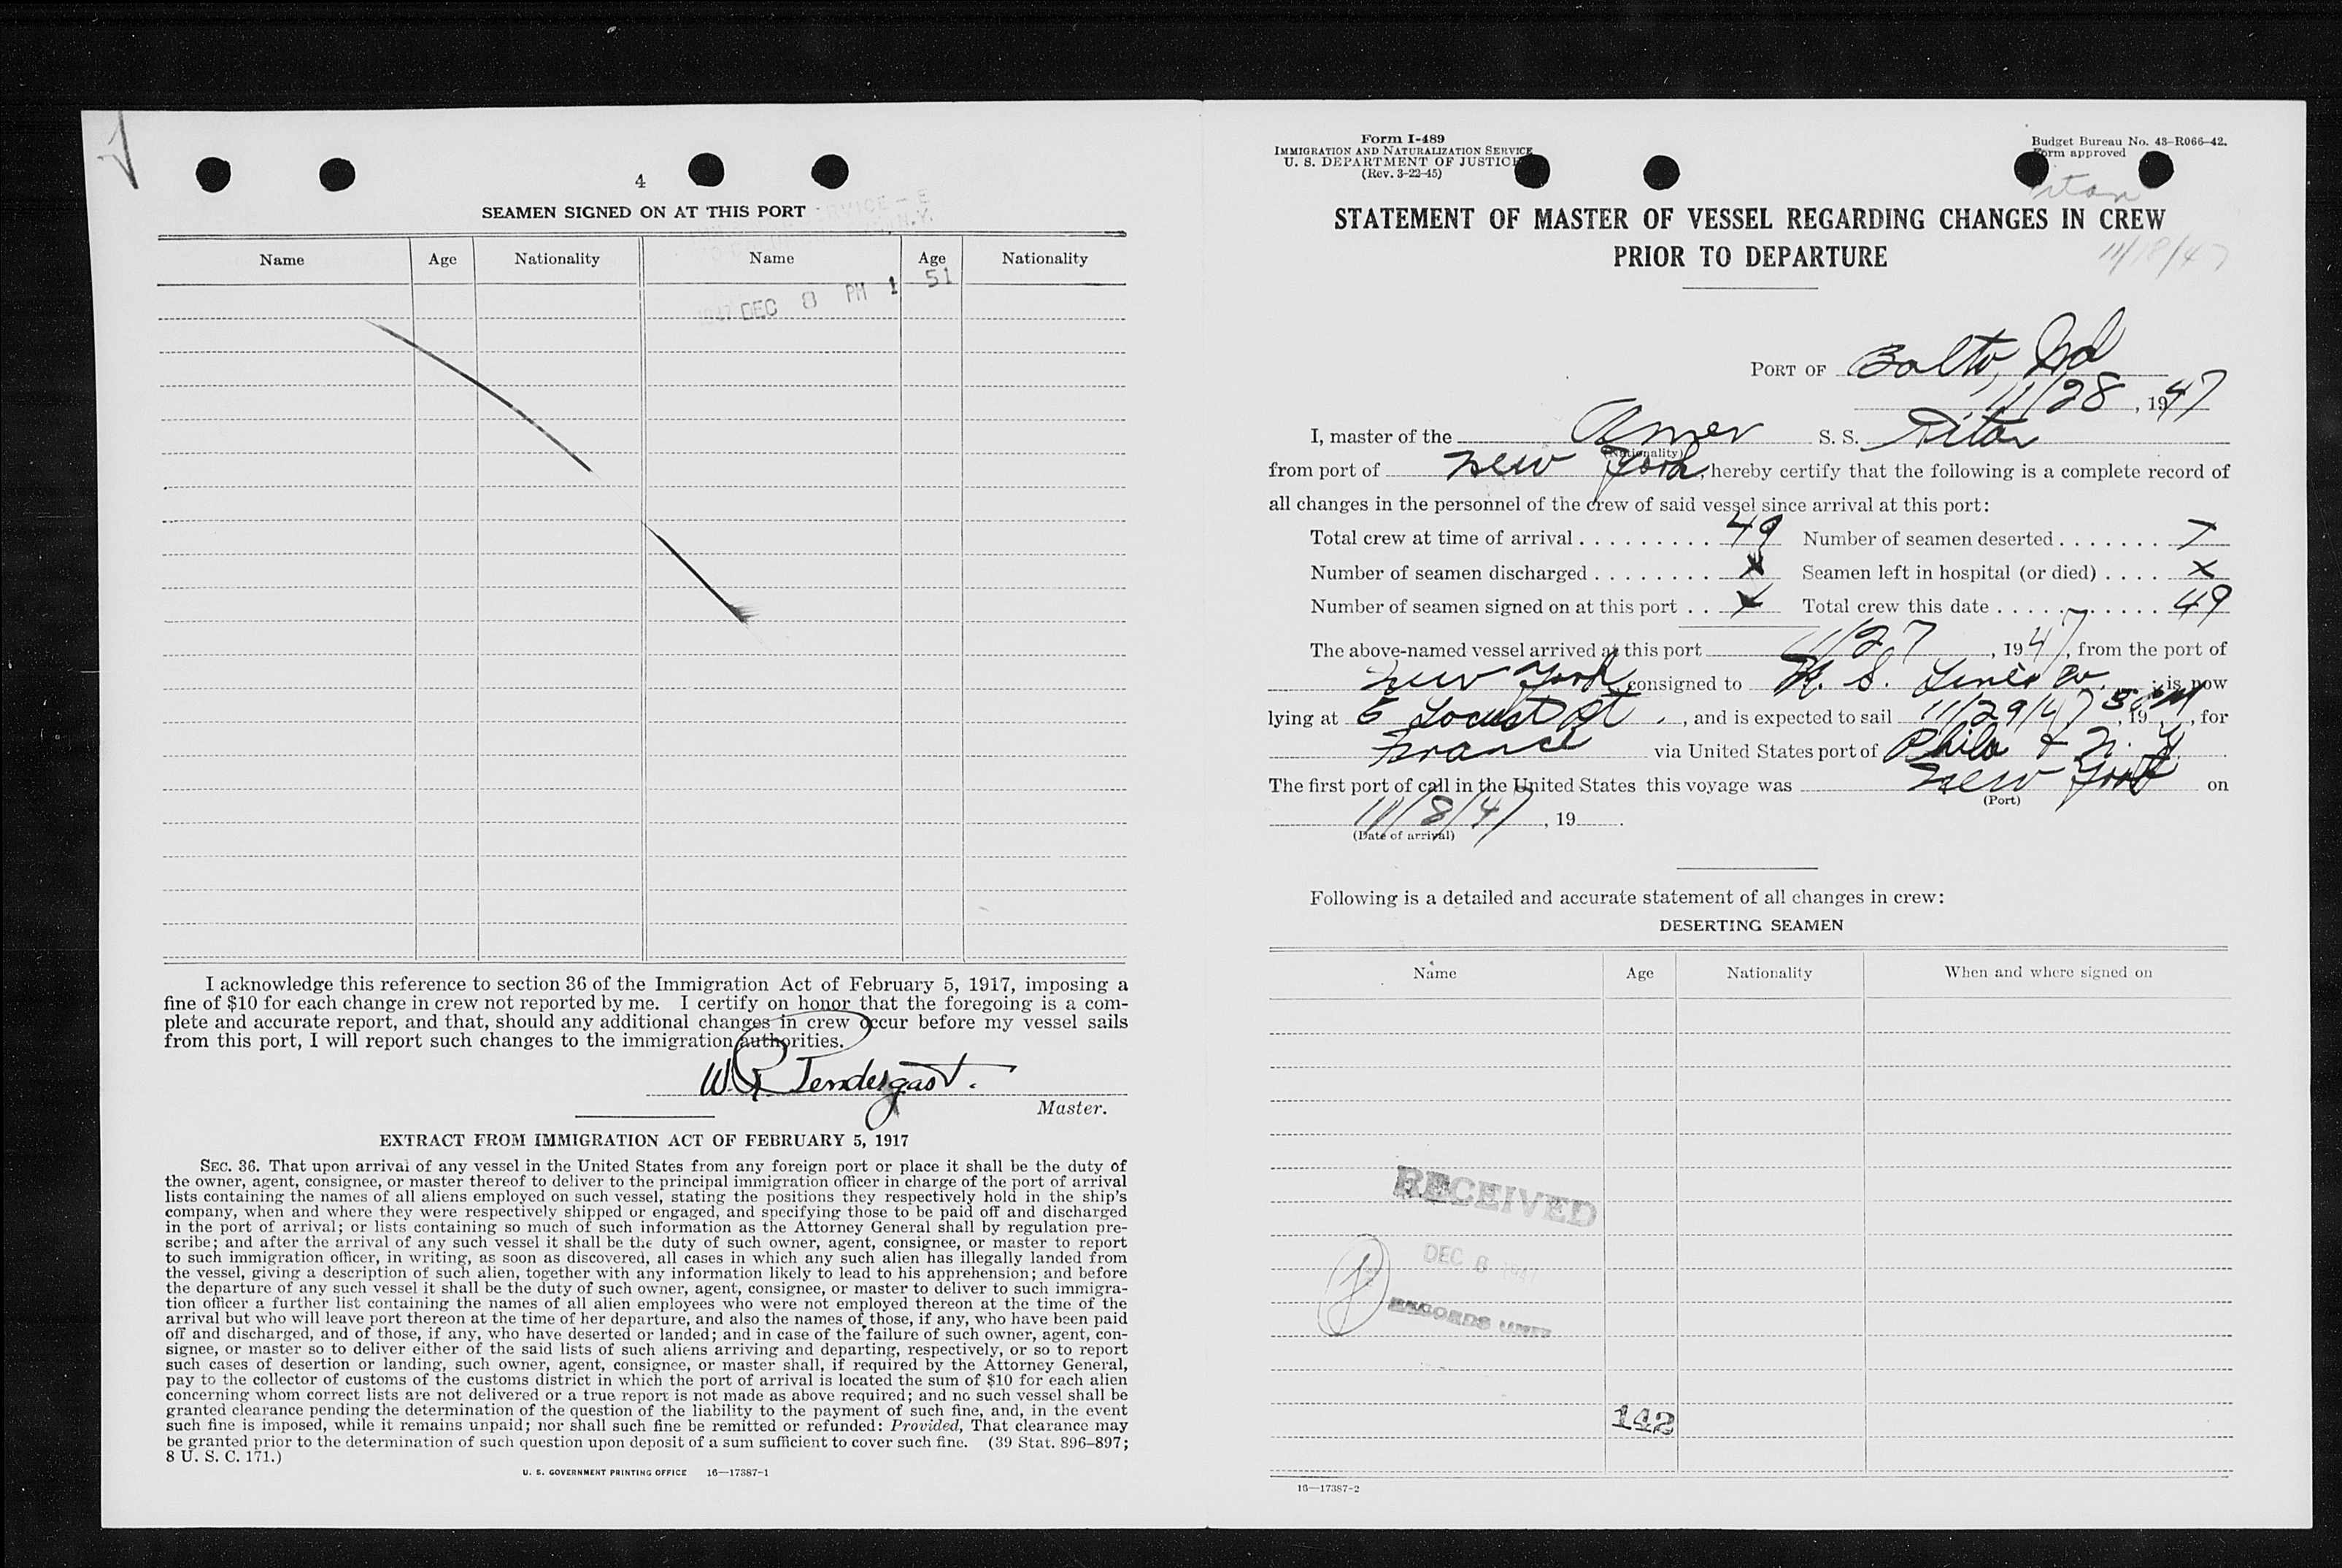 4
SEAMEN SIGNED ON AT THIS PORT
Name Age Nationality Name Age Nationality
1947 DEC 8 PM 1 51
I acknowledge this reference to section 36 of the Immigration Act of February 5, 1917, imposing a
fine of $10 for each change in crew not reported by me. I certify on honor that the foregoing is a com-
plete and accurate report, and that, should any additional changes in crew occur before my vessel sails
from this port, I will report such changes to the immigration authorities.
W. R. Pendergast.
Master.
EXTRACT FROM IMMIGRATION ACT OF FEBRUARY 5, 1917
SEC. 36. That upon arrival of any vessel in the United States from any foreign port or place it shall be the duty of
the owner, agent, consignee, or master thereof to deliver to the principal immigration officer in charge of the port of arrival
lists containing the names of all aliens employed on such vessel, stating the positions they respectively hold in the ship's
company, when and where they were respectively shipped or engaged, and specifying those to be paid off and discharged
in the port of arrival; or lists containing so much of such information as the Attorney General shall by regulation pre-
scribe; and after the arrival of any such vessel it shall be the duty of such owner, agent, consignee, or master to report
to such immigration officer, in writing, as soon as discovered, all cases in which any such alien has illegally landed from
the vessel, giving a description of such alien, together with any information likely to lead to his apprehension; and before
the departure of any such vessel it shall be the duty of such owner, agent, consignee, or master to deliver to such immigra-
tion officer a further list containing the names of all alien employees who were not employed thereon at the time of the
arrival but who will leave port thereon at the time of her departure, and also the names of those, if any, who have been paid
off and discharged, and of those, if any, who have deserted or landed; and in case of the failure of such owner, agent, con-
signee, or master so to deliver either of the said lists of such aliens arriving and departing, respectively, or so to report
such cases of desertion or landing, such owner, agent, consignee, or master shall, if required by the Attorney General,
pay to the collector of customs of the customs district in which the port of arrival is located the sum of $10 for each alien
concerning whom correct lists are not delivered or a true report is not made as above required; and no such vessel shall be
granted clearance pending the determination of the question of the liability to the payment of such fine, and, in the event
such fine is imposed, while it remains unpaid; nor shall such fine be remitted or refunded: Provided, That clearance may
be granted prior to the determination of such question upon deposit of a sum sufficient to cover such fine. (39 Stat. 896–897;
8 U. S. C. 171.)
U. S. GOVERNMENT PRINTING OFFICE 16—17387-1
Form I-489
IMMIGRATION AND NATURALIZATION SERVICE
U. S. DEPARTMENT OF JUSTICE
(Rev. 3-22-45)
Budget Bureau No. 43-R066-42.
Form approved
STATEMENT OF MASTER OF VESSEL REGARDING CHANGES IN CREW
PRIOR TO DEPARTURE
11/18/47
PORT OF Balto, Md
11/28, 1947
I, master of the Amer S. S.
(Nationality)
from port of New York, hereby certify that the following is a complete record of
all changes in the personnel of the crew of said vessel since arrival at this port:
Total crew at time of arrival 49 Number of seamen deserted
Number of seamen discharged x Seamen left in hospital (or died) x
Number of seamen signed on at this port x Total crew this date 49
The above-named vessel arrived at this port 11/27, 1947, from the port of
New York consigned to U. S. Lines Co.; is now
lying at 6 Locust Pt, and is expected to sail 11/29/47 5 PM, 19, for
France via United States port of Phila & N. Y.
The first port of call in the United States this voyage was New York on
(Port)
11/8/47, 19.
(Date of arrival)
Following is a detailed and accurate statement of all changes in crew:
DESERTING SEAMEN
Name Age Nationality When and where signed on
RECEIVED
DEC 8 1947
RECORDS UNIT
142
16—17387-2